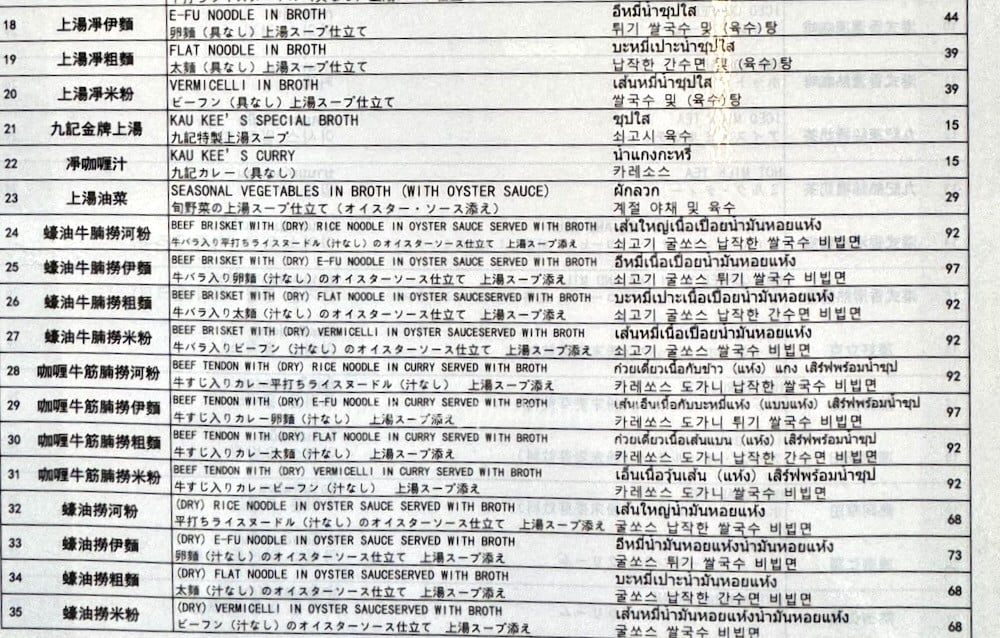 18 上湯凈伊麵 E-FU NOODLE IN BROTH อีหมี่น้ำซุปใส 44
卵麺（具なし）上湯スープ仕立て 튀기 쌀국수 및 (육수)탕
19 上湯凈粗麵 FLAT NOODLE IN BROTH บะหมี่เปาะน้ำซุปใส 39
太麺（具なし）上湯スープ仕立て 납작한 간수면 및 (육수)탕
20 上湯凈米粉 VERMICELLI IN BROTH เส้นหมี่น้ำซุปใส 39
ビーフン（具なし）上湯スープ仕立て 쌀국수 및 (육수)탕
21 九記金牌上湯 KAU KEE'S SPECIAL BROTH ซุปใส 15
九記特製上湯スープ 쇠고시 육수
22 凈咖喱汁 KAU KEE'S CURRY น้ำแกงกะหรี่ 15
九記カレー（具なし） 카레소스
23 上湯油菜 SEASONAL VEGETABLES IN BROTH (WITH OYSTER SAUCE) ผักลวก 29
旬野菜の上湯スープ仕立て（オイスター・ソース添え） 계절 야채 및 육수
24 蠔油牛腩撈河粉 BEEF BRISKET WITH (DRY) RICE NOODLE IN OYSTER SAUCE SERVED WITH BROTH เส้นใหญ่เนื้อเปื่อยน้ำมันหอยแห้ง 92
牛バラ入り平打ちライスヌードル（汁なし）のオイスターソース仕立て 上湯スープ添え 쇠고기 굴쏘스 납작한 쌀국수 비빕면
25 蠔油牛腩撈伊麵 BEEF BRISKET WITH (DRY) E-FU NOODLE IN OYSTER SAUCE SERVED WITH BROTH อีหมี่เนื้อเปื่อยน้ำมันหอยแห้ง 97
牛バラ入り卵麺（汁なし）のオイスターソース仕立て 上湯スープ添え 쇠고기 굴쏘스 튀기 쌀국수 비빕면
26 蠔油牛腩撈粗麵 BEEF BRISKET WITH (DRY) FLAT NOODLE IN OYSTER SAUCESERVED WITH BROTH บะหมี่เปาะเนื้อเปื่อยน้ำมันหอยแห้ง 92
牛バラ入り太麺（汁なし）のオイスターソース仕立て 上湯スープ添え 쇠고기 굴쏘스 납작한 간수면 비빕면
27 蠔油牛腩撈米粉 BEEF BRISKET WITH (DRY) VERMICELLI IN OYSTER SAUCESERVED WITH BROTH เส้นหมี่เนื้อเปื่อยน้ำมันหอยแห้ง 92
牛バラ入りビーフン（汁なし）のオイスターソース仕立て 上湯スープ添え 쇠고기 굴쏘스 쌀국수 비빕면
28 咖喱牛筋腩撈河粉 BEEF TENDON WITH (DRY) RICE NOODLE IN CURRY SERVED WITH BROTH ก๋วยเตี๋ยวเนื้อกับข้าว (แห้ง) แกง เสิร์ฟพร้อมน้ำซุป 92
牛すじ入りカレー平打ちライスヌードル（汁なし） 上湯スープ添え 카레쏘스 도가니 납작한 쌀국수 비빕면
29 咖喱牛筋腩撈伊麵 BEEF TENDON WITH (DRY) E-FU NOODLE IN CURRY SERVED WITH BROTH เส้นเอ็นเนื้อกับบะหมี่แห้ง (แบบแห้ง) เสิร์ฟพร้อมน้ำซุป 97
牛すじ入りカレー卵麺（汁なし） 上湯スープ添え 카레쏘스 도가니 튀기 쌀국수 비빕면
30 咖喱牛筋腩撈粗麵 BEEF TENDON WITH (DRY) FLAT NOODLE IN CURRY SERVED WITH BROTH ก๋วยเตี๋ยวเนื้อเส้นแบน (แห้ง) เสิร์ฟพร้อมน้ำซุป 92
牛すじ入りカレー太麺（汁なし） 上湯スープ添え 카레쏘스 도가니 납작한 간수면 비빕면
31 咖喱牛筋腩撈米粉 BEEF TENDON WITH (DRY) VERMICELLI IN CURRY SERVED WITH BROTH เอ็นเนื้อวุ้นเส้น (แห้ง) เสิร์ฟพร้อมน้ำซุป 92
牛すじ入りカレービーフン（汁なし） 上湯スープ添え 카레쏘스 도가니 쌀국수 비빕면
32 蠔油撈河粉 (DRY) RICE NOODLE IN OYSTER SAUCE SERVED WITH BROTH เส้นใหญ่น้ำมันหอยแห้ง 68
平打ちライスヌードル（汁なし）のオイスターソース仕立て 上湯スープ添え 굴쏘스 납작한 쌀국수 비빕면
33 蠔油撈伊麵 (DRY) E-FU NOODLE IN OYSTER SAUCE SERVED WITH BROTH อีหมี่น้ำมันหอยแห้งน้ำมันหอยแห้ง 73
卵麺（汁なし）のオイスターソース仕立て 上湯スープ添え 굴쏘스 튀기 쌀국수 비빕면
34 蠔油撈粗麵 (DRY) FLAT NOODLE IN OYSTER SAUCESERVED WITH BROTH บะหมี่เปาะน้ำมันหอยแห้ง 68
太麺（汁なし）のオイスターソース仕立て 上湯スープ添え 굴쏘스 납작한 간수면 비빕면
35 蠔油撈米粉 (DRY) VERMICELLI IN OYSTER SAUCESERVED WITH BROTH เส้นหมี่น้ำมันหอยแห้งน้ำมันหอยแห้ง 68
ビーフン（汁なし）のオイスターソース仕立て 上湯スープ添え 굴쏘스 쌀국수 비빕면